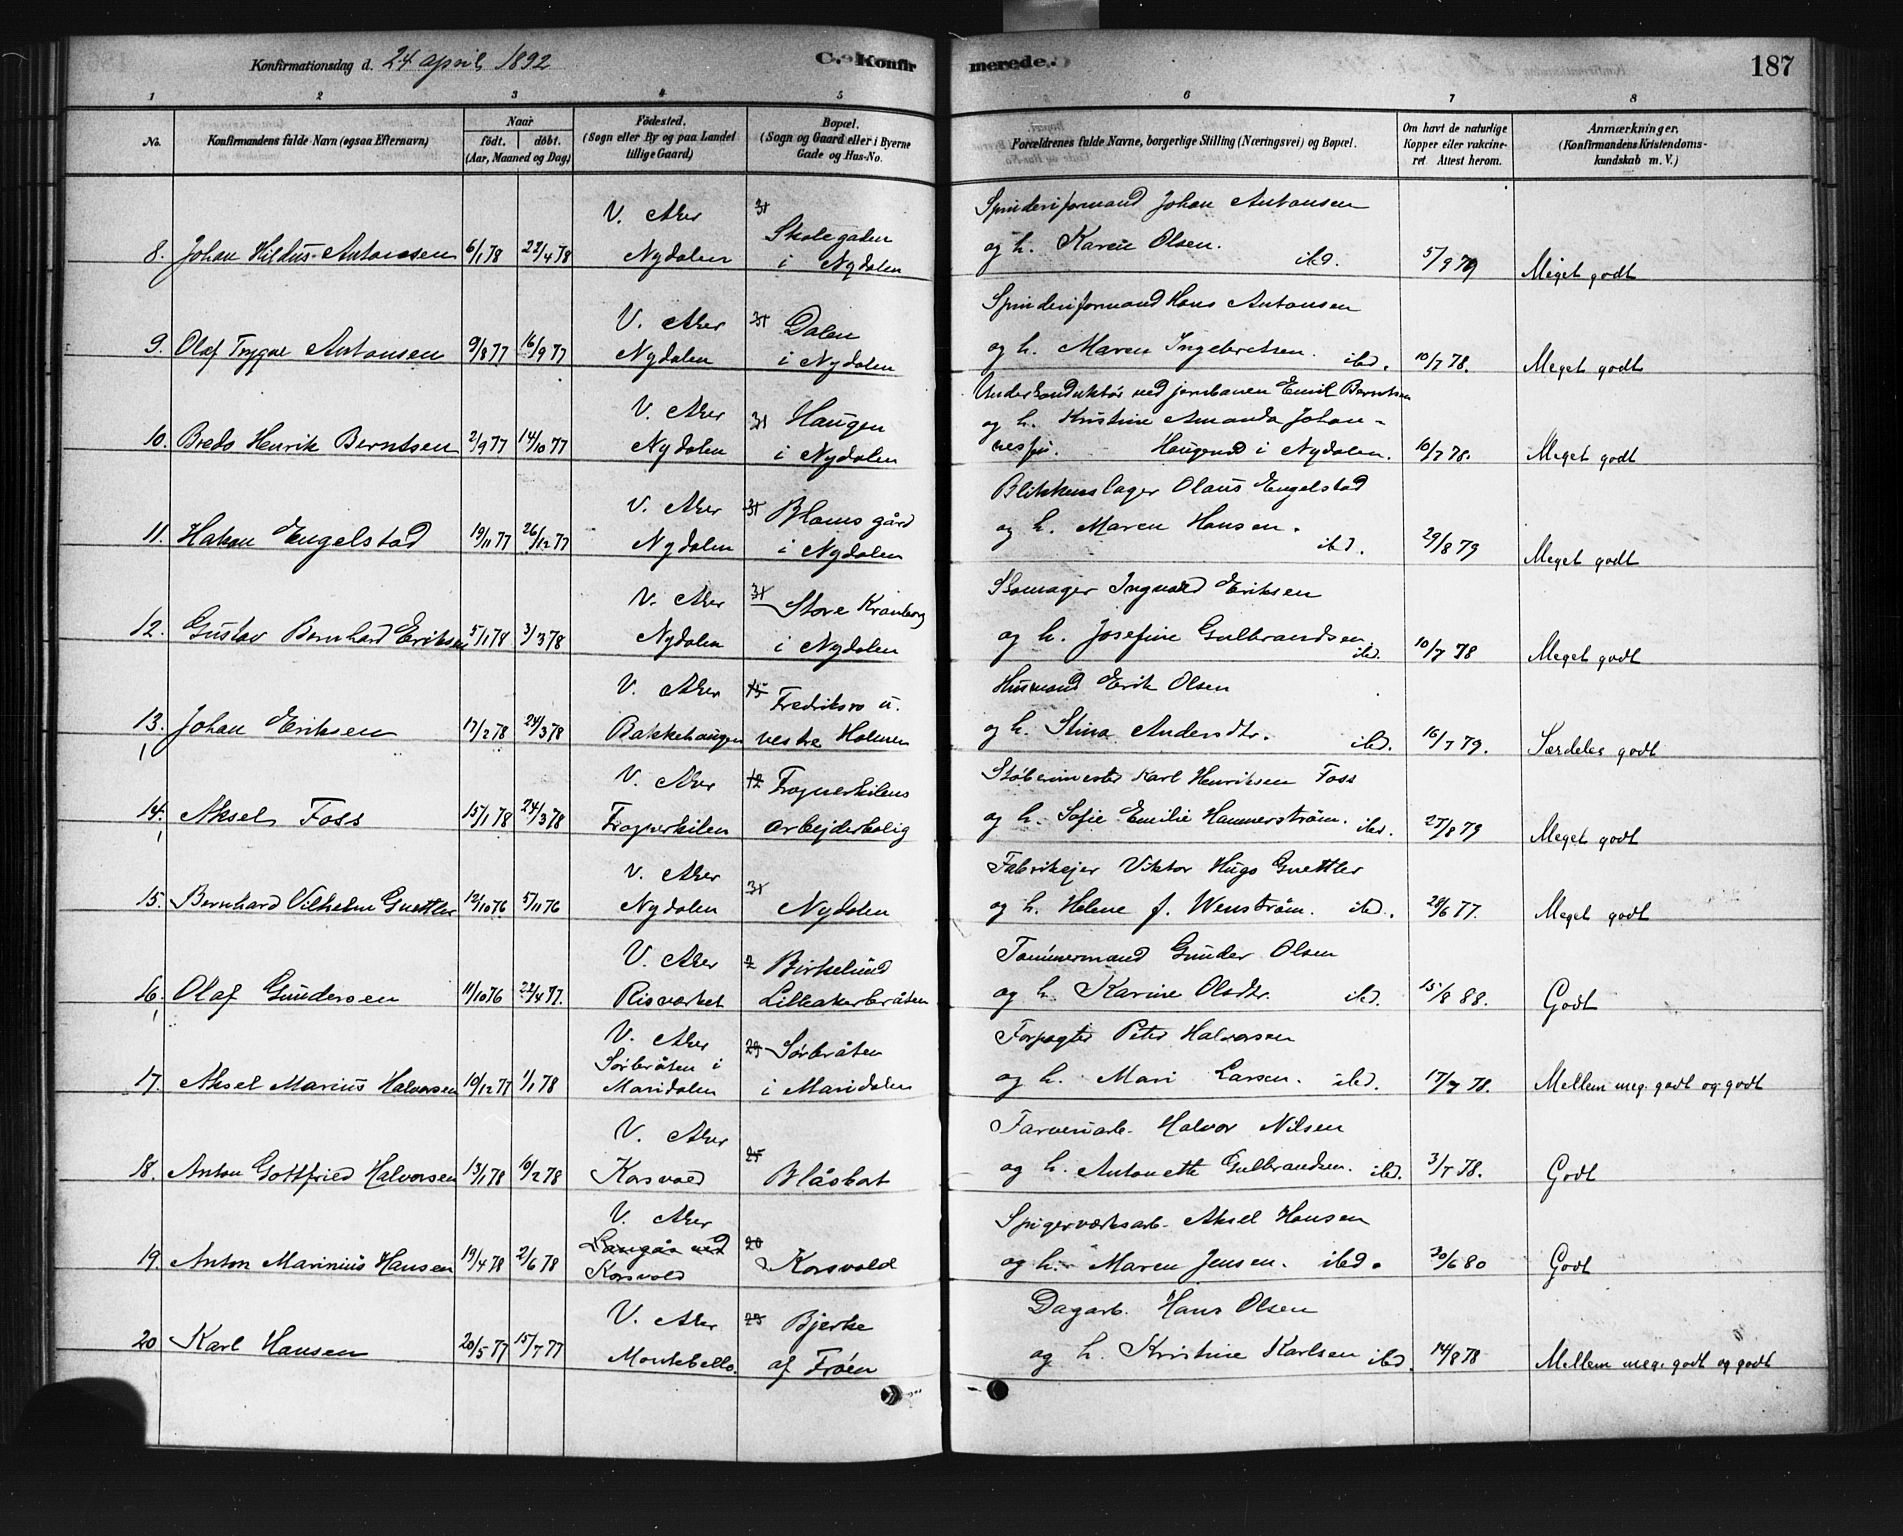 Konfirmationsdag d. 24 april 1892
C. Konfirmerede.
187
1 2 3 4 5 6 7 8
No.
Konfirmandens fulde Navn (ogsaa Efternavn)
Naar
født. døbt.
(Aar, Maaned og Dag)
Fødested.
(Sogn eller By og paa Landet
tillige Gaard)
Bopæl.
(Sogn og Gaard eller i Byerne
Gade og Hus-No.
Forældrenes fulde Navne, borgerlige Stilling (Næringsvei) og Bopæl.
Om havt de naturlige
Kopper eller vakcine-
ret Attest herom.
Anmærkninger.
(Konfirmandens Kristendoms-
kundskab m. V.)
V. Aker 31 Spinderiformand Johan Antonsen
8. Johan Hildus Antonsen 6/1 78 22/4 78 Nydalen Skolegaden i Nydalen og h. Karen Olsen. ibd. 5/9 79 Meget godt
V. Aker 31 Dalen Spinderiformand Hans Antonsen
9. Olaf Trygve Antonsen 9/8 77 16/9 77 Nydalen i Nydalen og h. Maren Ingebretsen. ibd. 10/7 78. Meget godt
V. Aker 31 Haugen Underkonduktør ved jernbanen Emil Berntsen
og h. Kristine Amanda Johan-
10. Bredo Henrik Berntsen 2/9 77 14/10 77 Nydalen i Nydalen nesen. Haugen i Nydalen. 10/7 78. Meget godt
V. Aker 31 Blomsgård Blikkenslager Olaus Engelstad
11. Hakon Engelstad 19/11 77 26/12 77 Nydalen i Nydalen og h. Maren Hansen. ibd. 29/8 79 Meget godt
V. Aker 31 Store Kranberg Skomager Ingvald Eriksen
12. Gustav Bernhard Eriksen 5/1 78 3/3 78 Nydalen i Nydalen og h. Josefine Gulbrandsen ibd. 10/7 78 Meget godt
V. Aker 15 Fredriksro u. Husmand Erik Olsen
13. Johan Eriksen 17/2 78 24/3 78 Bakkehaugen vestre Holmen og h. Stina Andersdtr. ibd. 16/7 79. Særdeles godt
V. Aker 12 Frognerkilens Støbermester Karl Henriksen Foss
14. Aksel Foss 15/1 78 24/3 78 Frognerkilen arbejderbolig og h. Sofie Emilie Hammerstrøm. ibd. 27/8 79 Meget godt
V. Aker 31 Fabrikejer Viktor Hugo Guettler
15. Bernhard Vilhelm Guettler 12/10 76 5/11 76 Nydalen Nydalen og h. Helene f. Wenstrøm. ibd. 28/6 77. Meget godt
V. Aker 2 Birkelund Tømmermand Gunder Olsen
16. Olaf Gundersen 11/10 76 22/4 77. Risværket Lilleakerbråten og h. Karine Olsdtr. ibd. 15/8 88. Godt
V. Aker 29 Sørbråten Forpagter Peter Halvorsen
Sørbråten i
17. Aksel Marius Halvorsen 10/12 77 1/1 78 Maridalen i Maridalen og h. Mari Larsen. ibd. 17/7 78. Mellem meg. godt og godt
V. Aker 25 Farveriarb. Halvor Nilsen
18. Anton Gottfried Halvorsen 13/1 78 10/2 78 Korsvold Blåsbort og h. Antonette Gulbrandsen. ibd. 3/7 78. Godt
V. Aker 20 Spigerværksarb. Aksel Hansen
Langåsen ved
19. Anton Marinius Hansen 19/4 78 2/6 78 Korsvold Korsvold og h. Maren Jensen. ibd. 30/6 80 Godt
V. Aker 23 Bjerke Dagarb. Hans Olsen
20 Karl Hansen 20/5 77 15/7 77 Montebello. af Frøen og h. Kristine Karlsen ibd. 14/8 78 Mellem meg. godt og godt